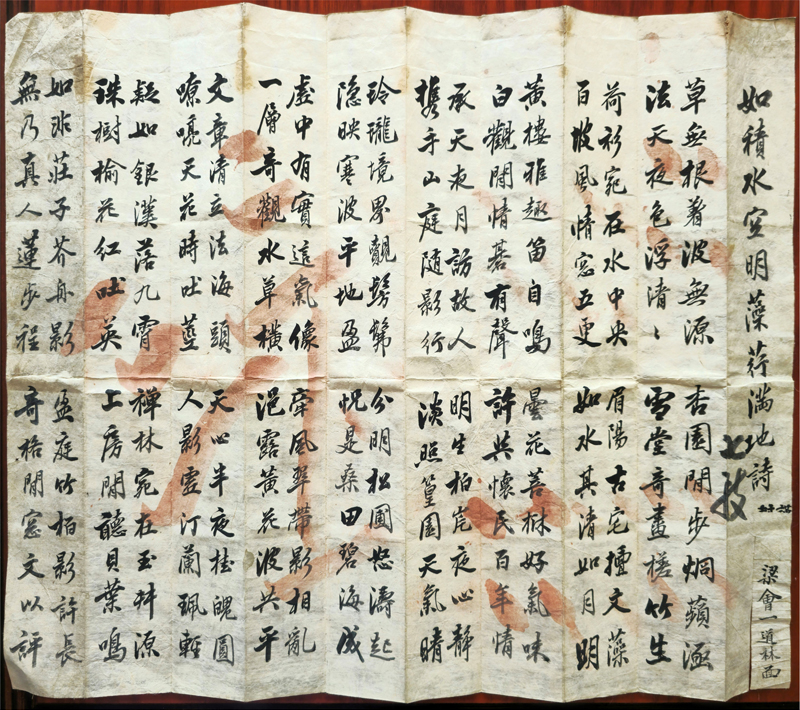 如積水空明藻荇滿地詩
草無根着波無源
法天夜色浮清ヽ
杏園閒步烟蘋涵
雪堂奇畫槎竹生
荷衫宛在水中央
百坡風情窓五更
眉陽古宅擅文藻
如水其清如月明
黃樓雅趣笛自鳴
白觀閒情碁有聲
曇花菩林好氣味
許共懷民百年情
承天夜月訪故人
携手山庭随影行
明生柏岸夜心靜
淡照篁園天氣晴
玲瓏境界觀髣髴
隐映寒波平地盈
分明松圃怒濤起
怳是桑田碧海成
虛中有實這氣像
一層奇觀水草橫
牽風翠帶影相亂
浥露黃花波共平
文章清立法海頭
嘹喨天花時吐莖
天心半夜桂魄圓
人影靈汀蘭珮輕
疑如銀漢落九霄
珠樹榆花紅吐英
禅林宛在玉井源
上房閒聽貝葉鳴
如非莊子芥舟影
無乃真人蓮步程
盈庭竹柏影許長
奇格閒窓文以評
梁會一道林面